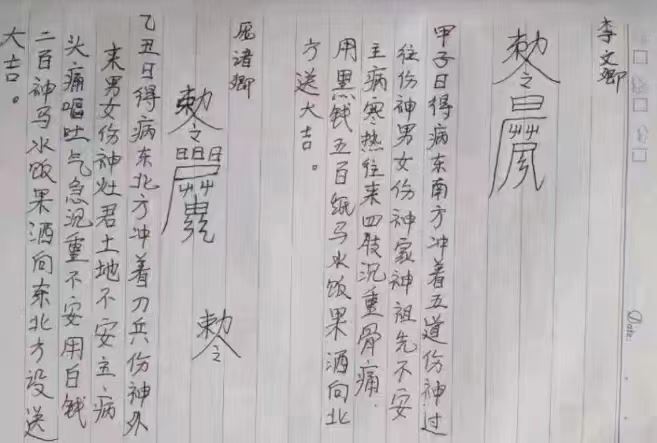 李文卿
敕令
甲子日得病东南方冲着五道伤神过
往伤神男女伤神家神祖先不安
主病寒热往来四肢沉重骨痛.
用黑钱五百纸马水饭果酒向北
方送大吉。
庞诸卿
敕令
敕令
乙丑日得病东北方冲着刀兵伤神外
来男女伤神灶君土地不安主病
头痛呕吐气急沉重不安用白钱
二百神马水饭果酒向东北方设送
大吉。
Date: